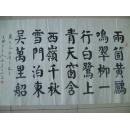 兩箇黃鸝
鳴翠柳一
行白鷺上
青天窗含
西嶺千秋
雪門泊東
吳萬里船